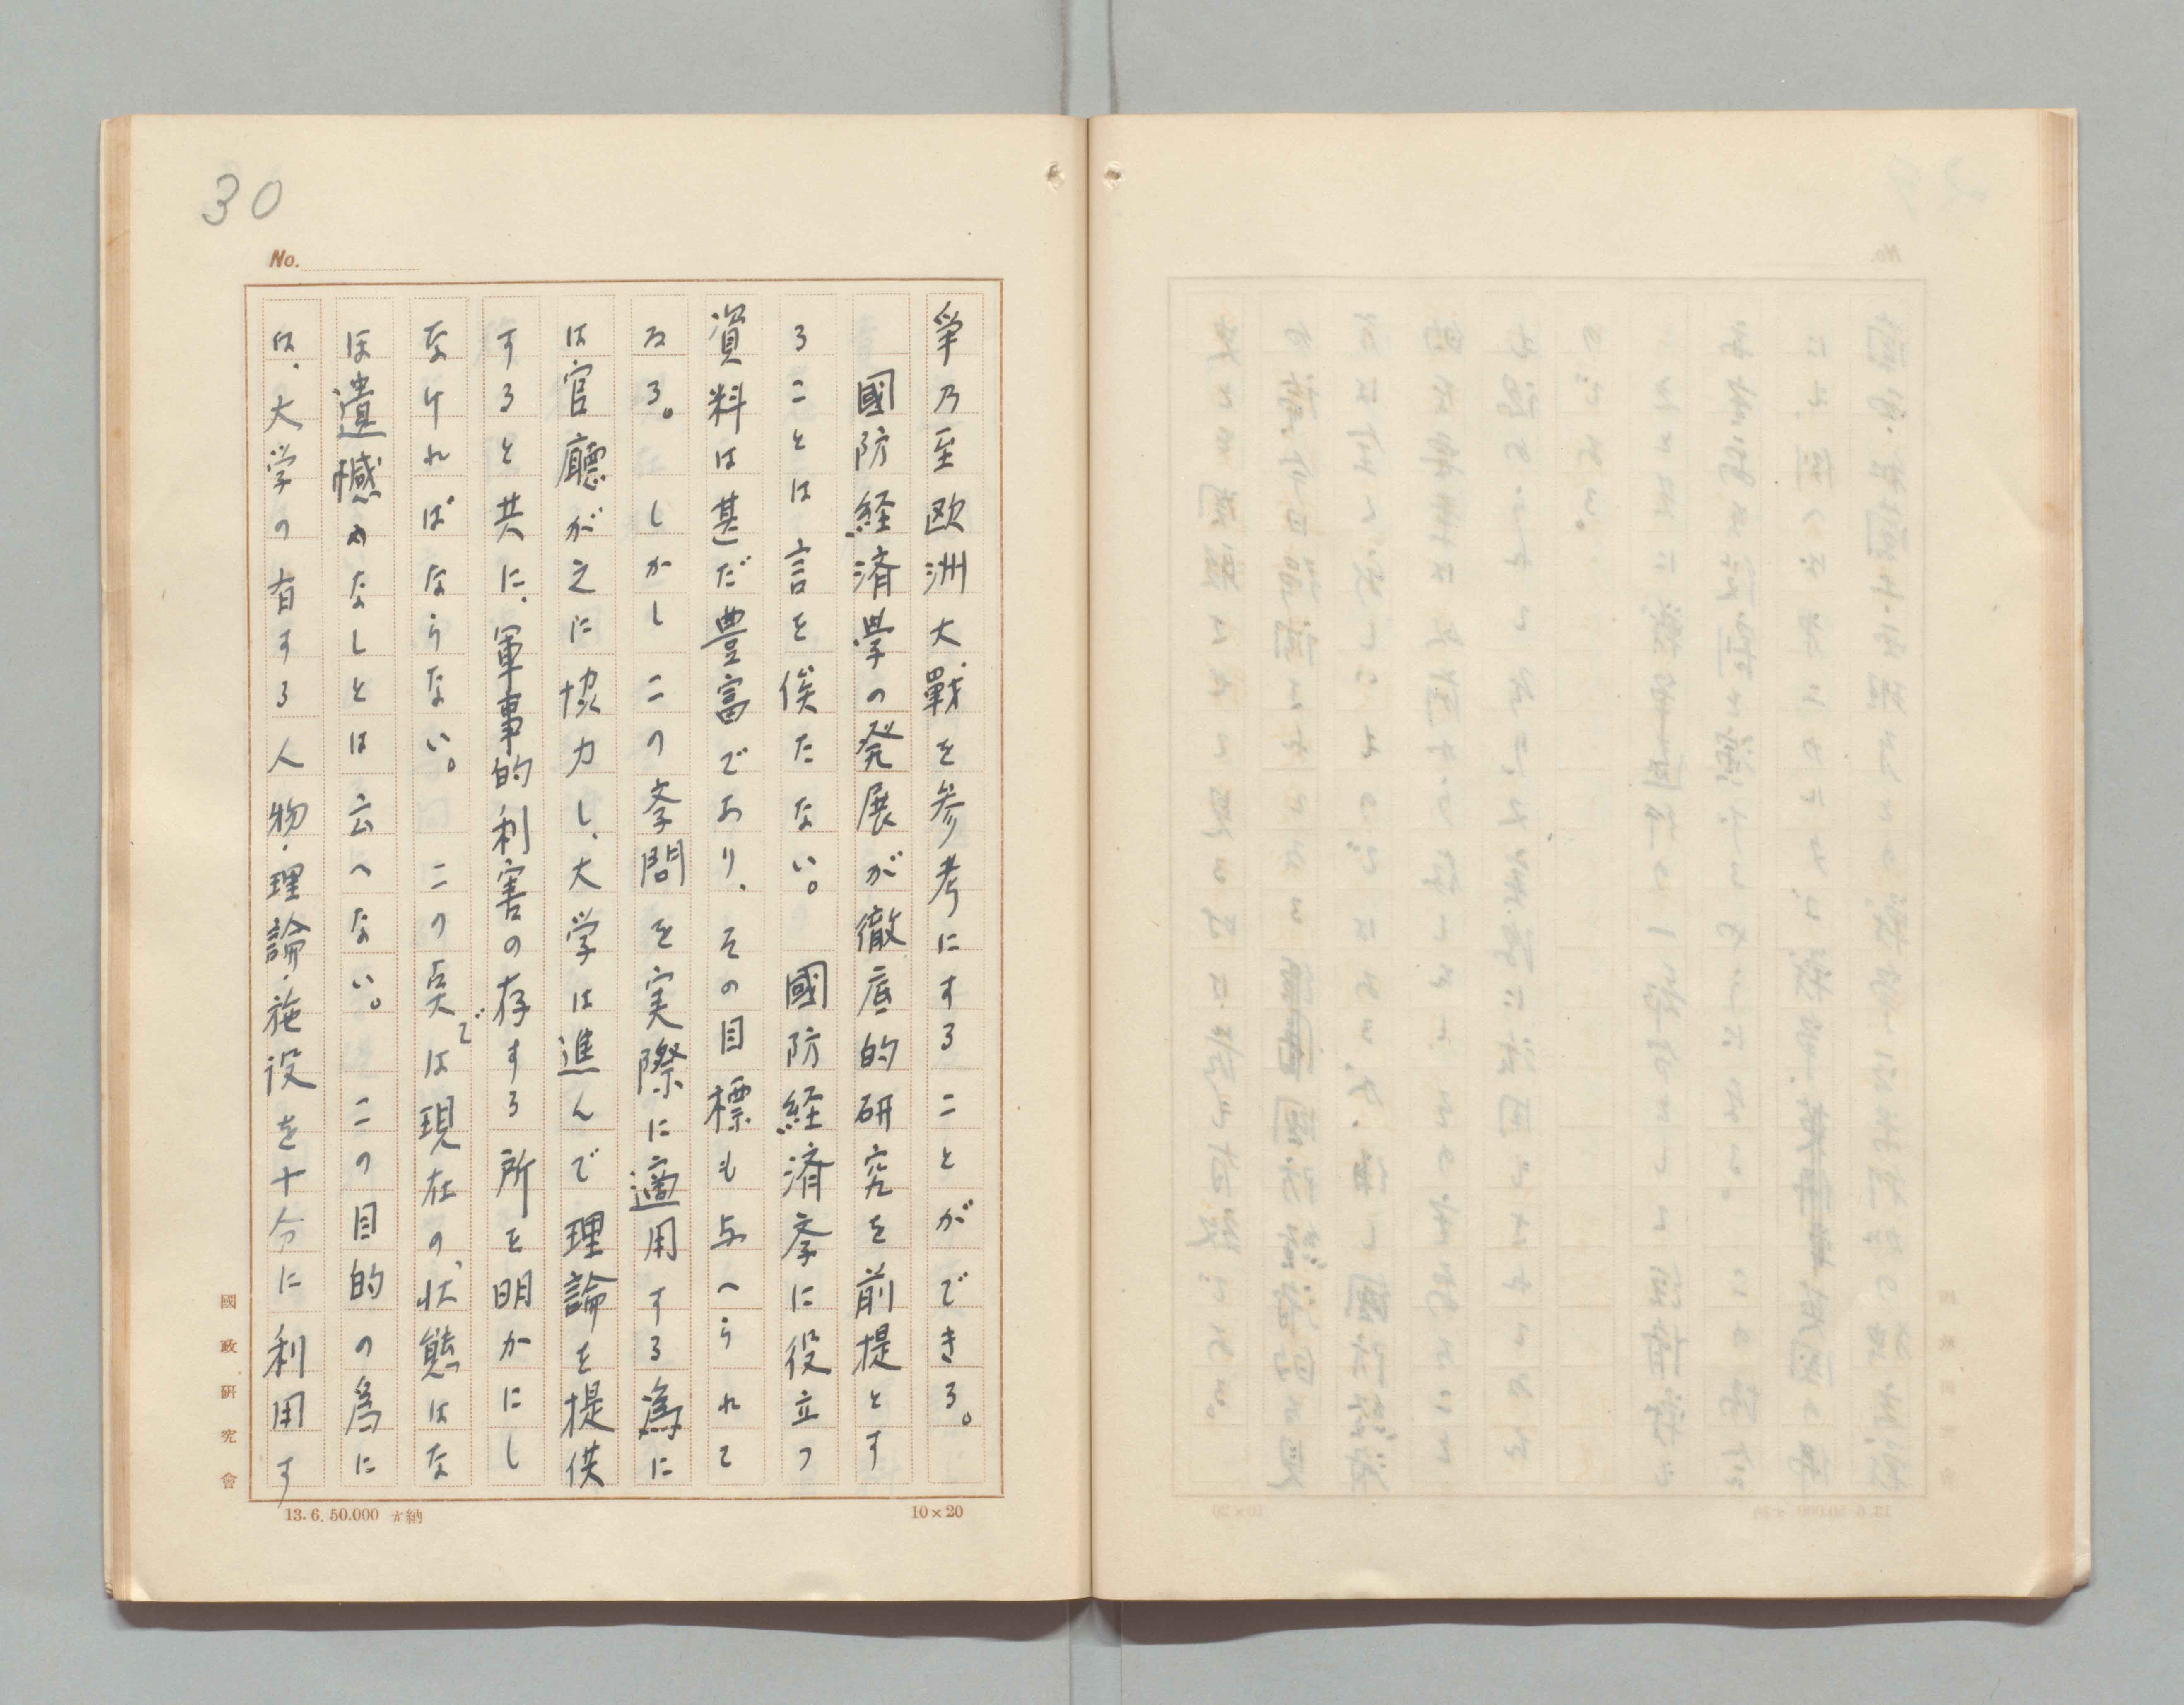 30
No.
爭乃至欧洲大戰を参考にすることができる。
國防経済學の発展が徹底的研究を前提とす
ることは言を俟たない。 國防経済斈に役立つ
資料は甚だ豊富であり、その目標も与へられて
ゐる。 しかしこの斈問を実際に適用する為に
は官廳が之に協力し、大学は進んで理論を提供
すると共に、軍事的利害の存する所を明かにし
なければならない。 この点では現在の状態はな
ほ遺憾なしとは云へない。 この目的の為に
は、大学の有する人物・理論・施設を十分に利用す
國政研究會
13.6.50.000 納
10×20